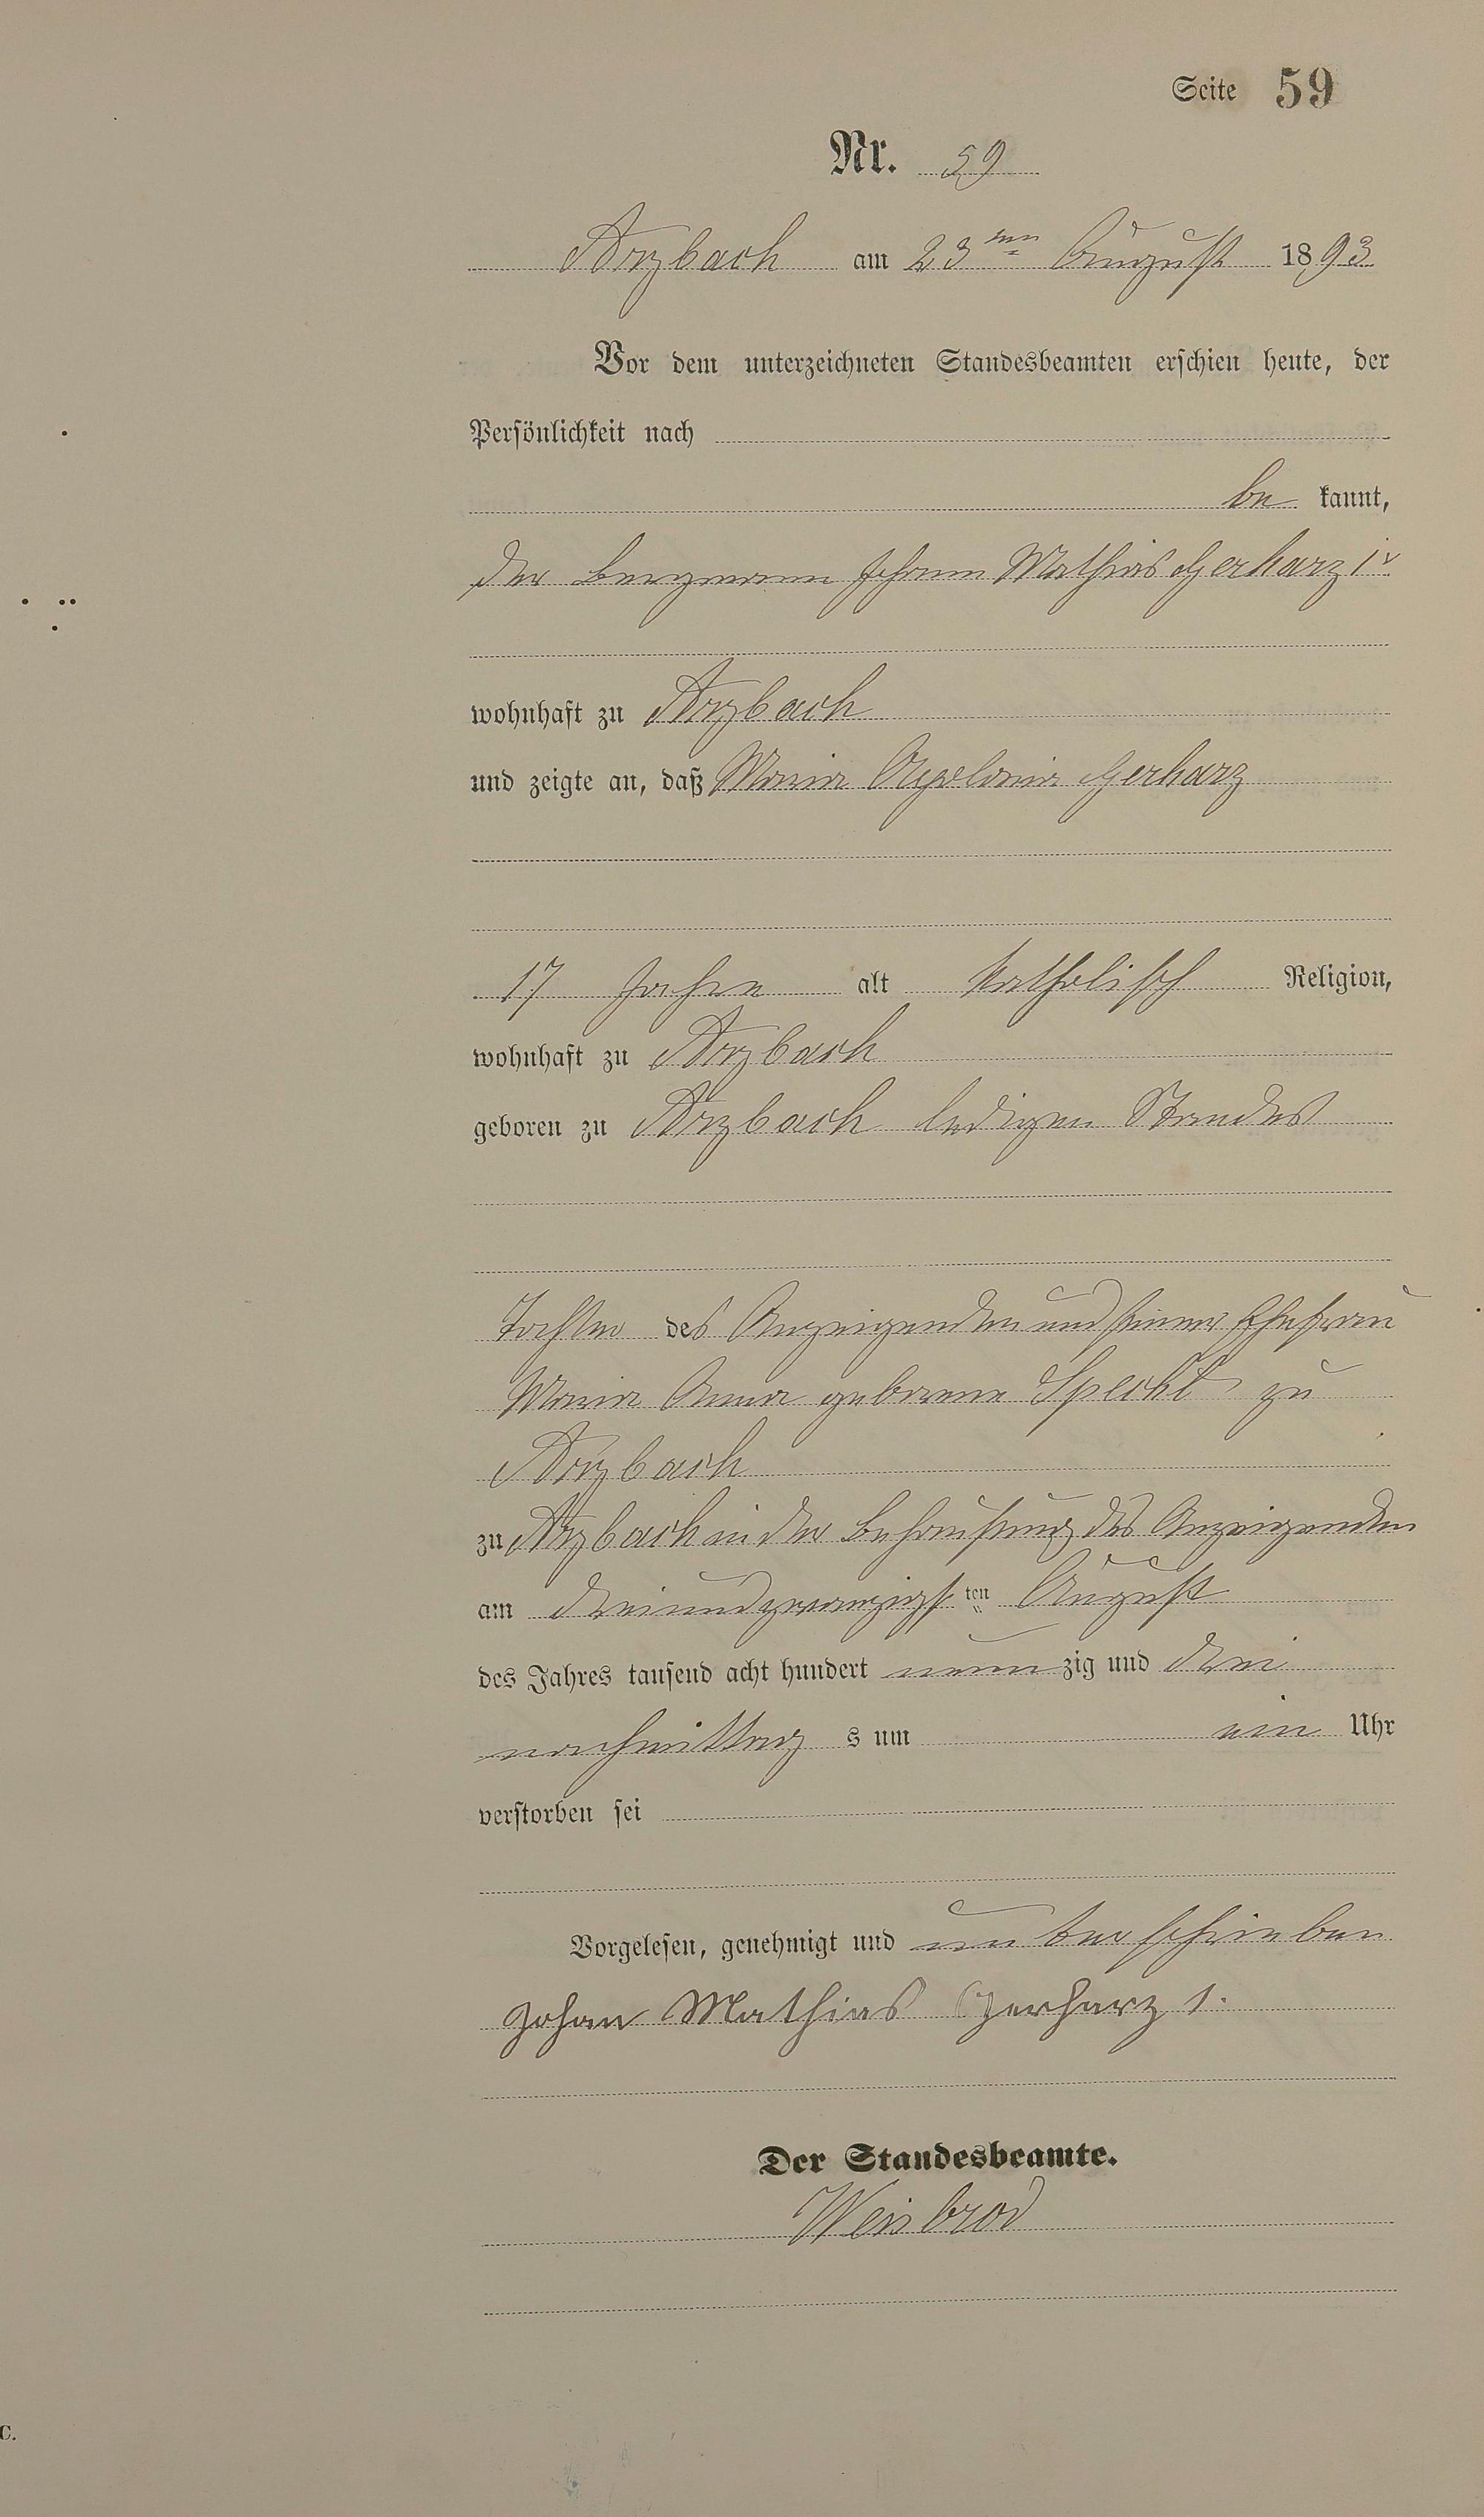 Seite 59
Nr. 59
Arzbach am 23ten August 1893
Vor dem unterzeichneten Standesbeamten erschien heute, der
Persönlichkeit nach
be kannt,
der Bergmann Johann Mathias Gerharz 1r
wohnhaft zu Arzbach
und zeigte an, daß Maria Apolonia Gerharz
17 Jahre alt katholisch Religion,
wohnhaft zu Arzbach
geboren zu Arzbach ledigen Standes
Tochter des Anzeigenden und seiner Ehefrau
Maria Anna geborene Specht zu
Arzbach
zu Arzbach in der Behausung des Anzeigenden
am dreiundzwanzigsten August
des Jahres tausend acht hundert neunzig und drei
nachmittags um ein Uhr
verstorben sei
Vorgelesen, genehmigt und unterschrieben
Johan Mathias Gerharz 1.
Der Standesbeamte.
Weisbrod
C.